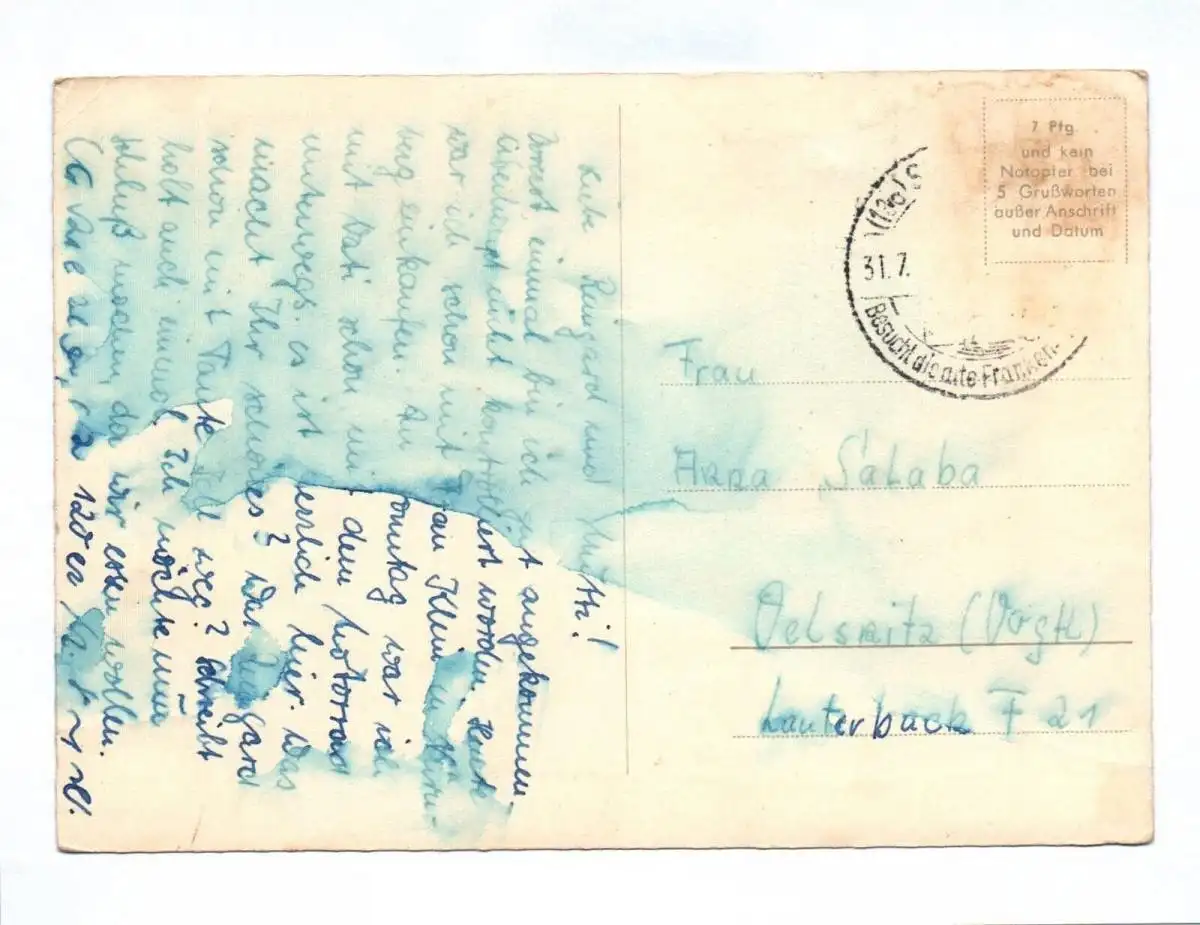 Liebe Reingard und Mutti!
Zuerst einmal bin ich gut angekommen.
überhaupt nicht kontrolliert worden. Heute
war ich schon mit Frau Klein in
einkaufen. Am Sonntag war ich
mit Vati schon mit dem Motorrad
unterwegs. es ist herrlich hier. Was
macht Ihr schönes? War
schon mit Tante weg? Schreibt
holt auch einmal. Ich möchte nun
Schluß machen, da wir essen wollen.
7 Pfg
und kein
Notopfer bei
5 Grußworten
außer Anschrift
und Datum
(13a)
31.7.
Besucht die alte Franken-
Frau
Anna Salaba
Oelsnitz (Vogtl)
Lauterbach F 21